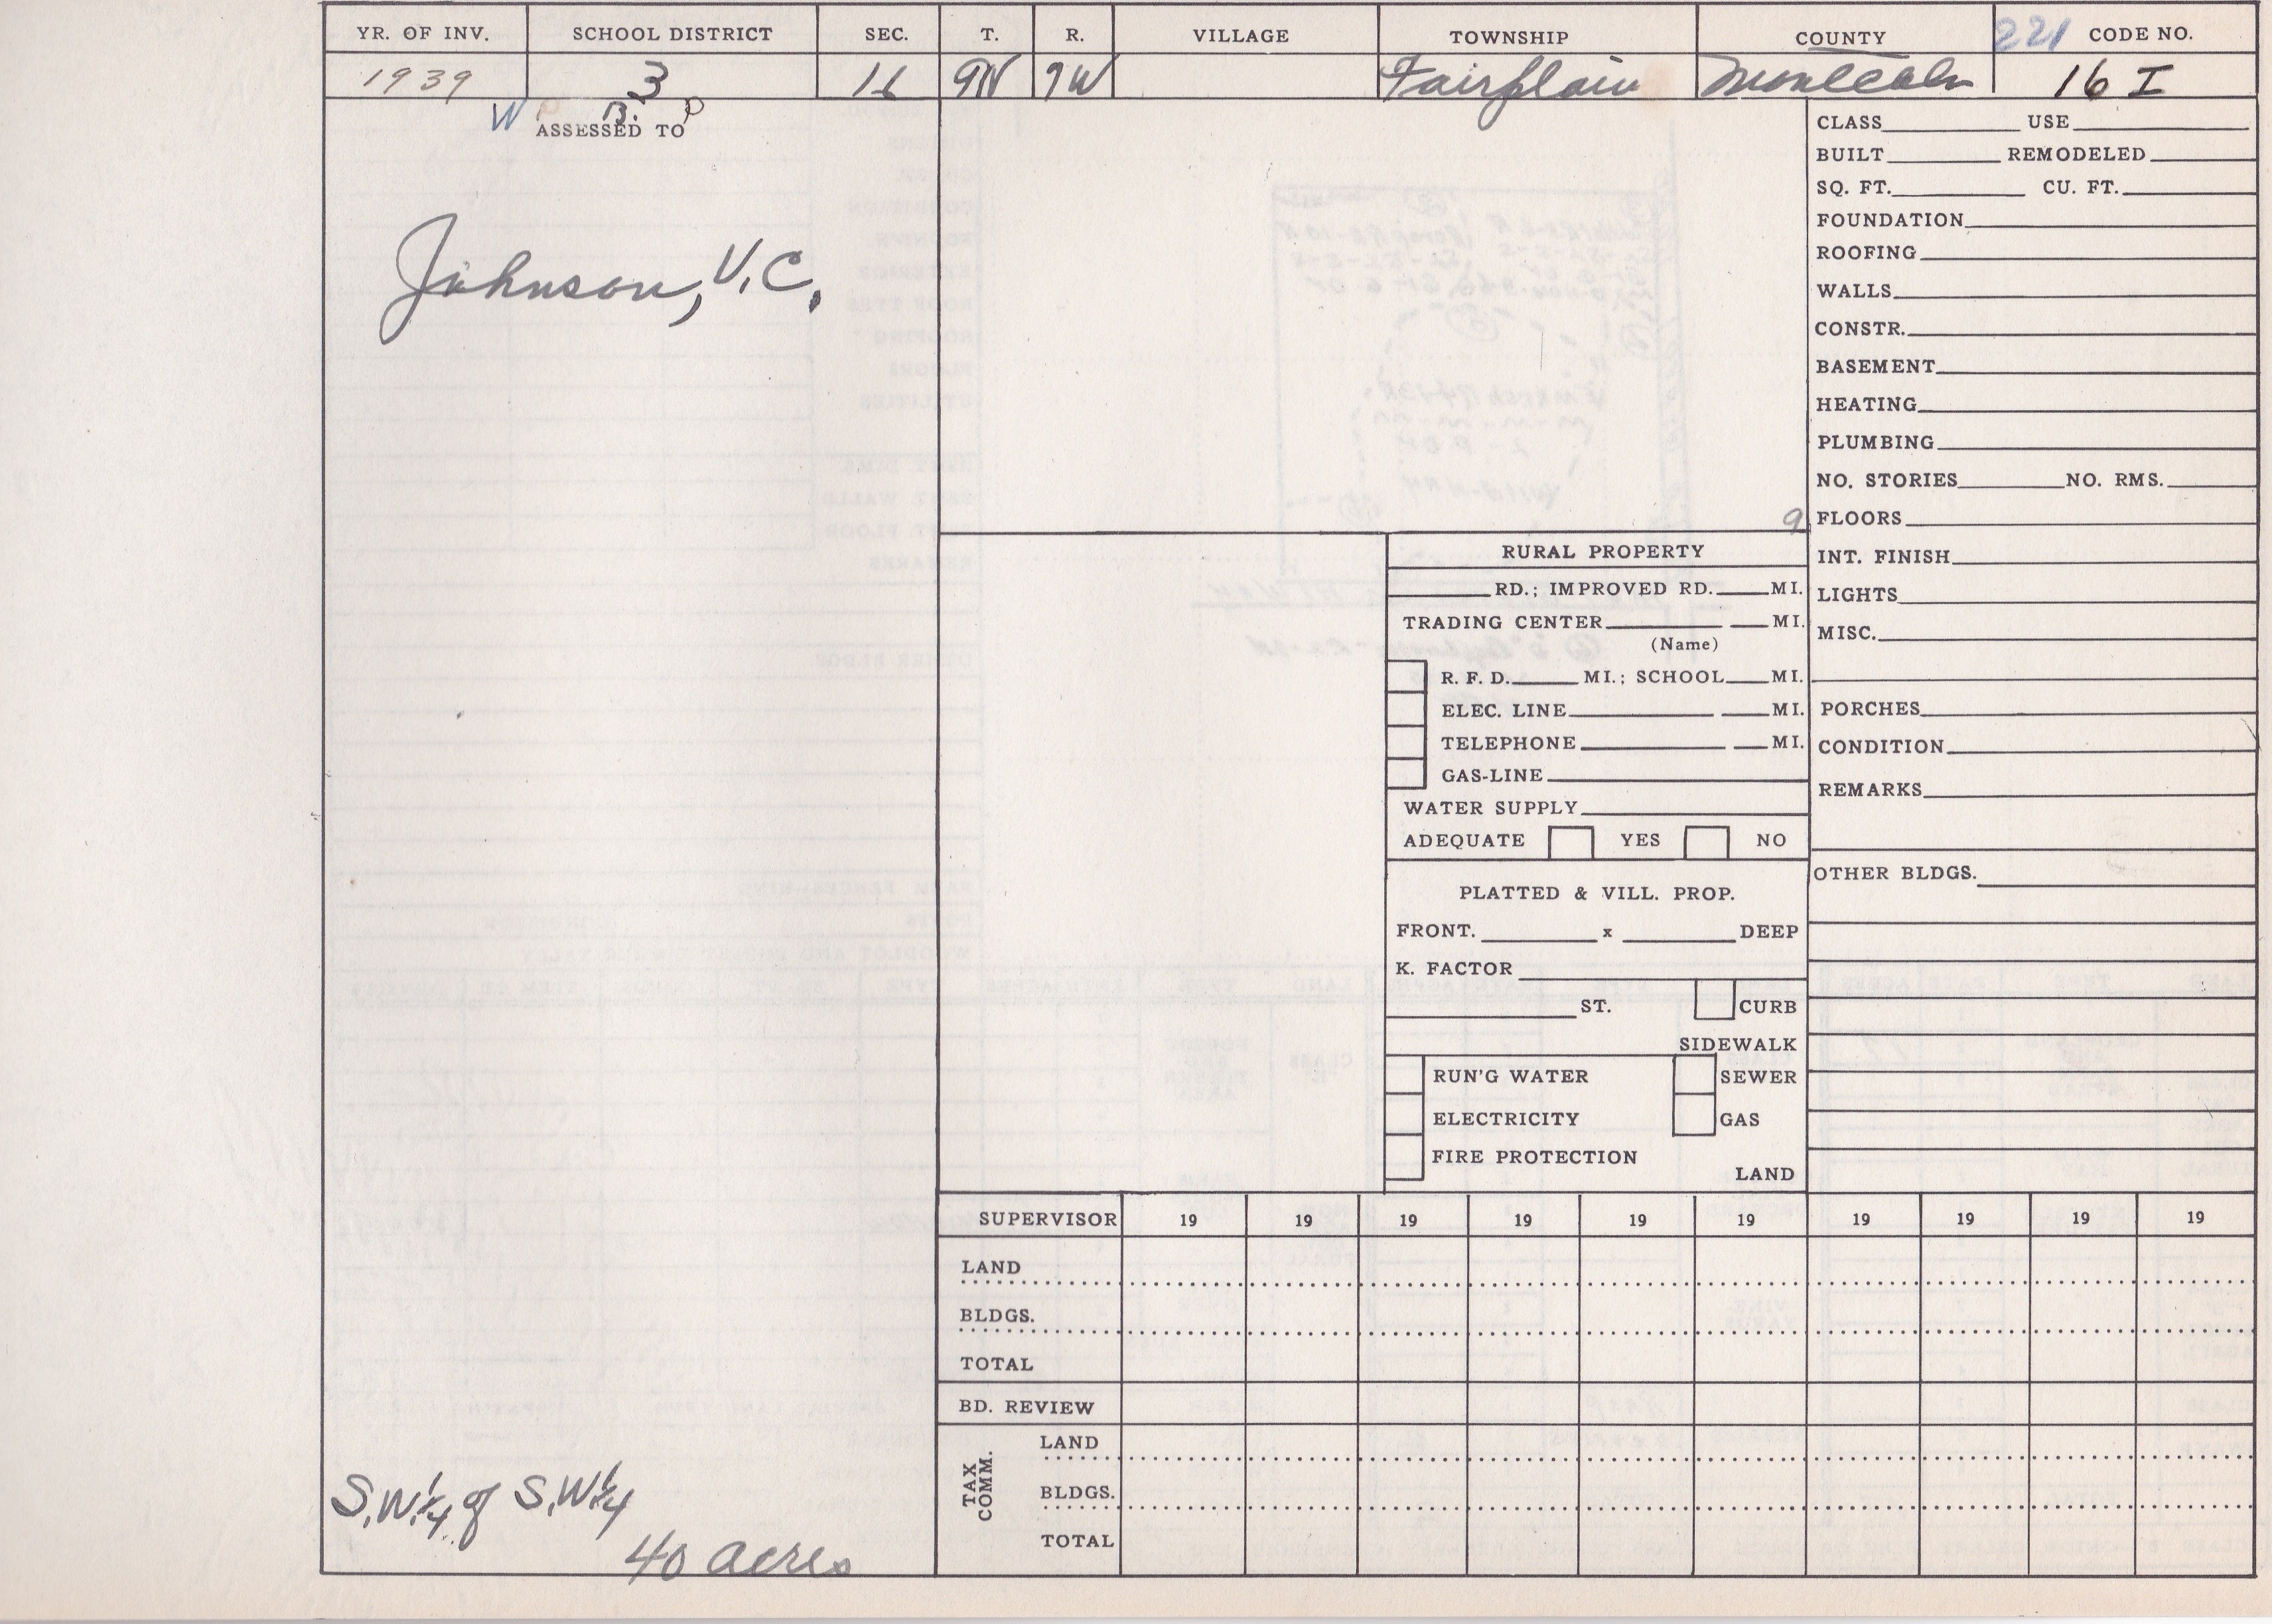 YR. OF INV. SCHOOL DISTRICT SEC. T. R. VILLAGE TOWNSHIP COUNTY 221 CODE NO.
1939 3 16 9N 7W Fairplain Montcalm 16 I
W P B. P
ASSESSED TO
Johnson, V.C.
S.W.1/4 of S.W.1/4
40 acres
9
RURAL PROPERTY
RD.; IMPROVED RD. MI.
TRADING CENTER MI.
(Name)
R. F. D. MI.; SCHOOL MI.
ELEC. LINE MI.
TELEPHONE MI.
GAS-LINE
WATER SUPPLY
ADEQUATE YES NO
PLATTED & VILL. PROP.
FRONT. x DEEP
K. FACTOR
ST. CURB
SIDEWALK
RUN'G WATER SEWER
ELECTRICITY GAS
FIRE PROTECTION
LAND
CLASS USE
BUILT REMODELED
SQ. FT. CU. FT.
FOUNDATION
ROOFING
WALLS
CONSTR.
BASEMENT
HEATING
PLUMBING
NO. STORIES NO. RMS.
FLOORS
INT. FINISH
LIGHTS
MISC.
PORCHES
CONDITION
REMARKS
OTHER BLDGS.
SUPERVISOR 19 19 19 19 19 19 19 19 19 19
LAND
BLDGS.
TOTAL
BD. REVIEW
TAX COMM.
LAND
BLDGS.
TOTAL